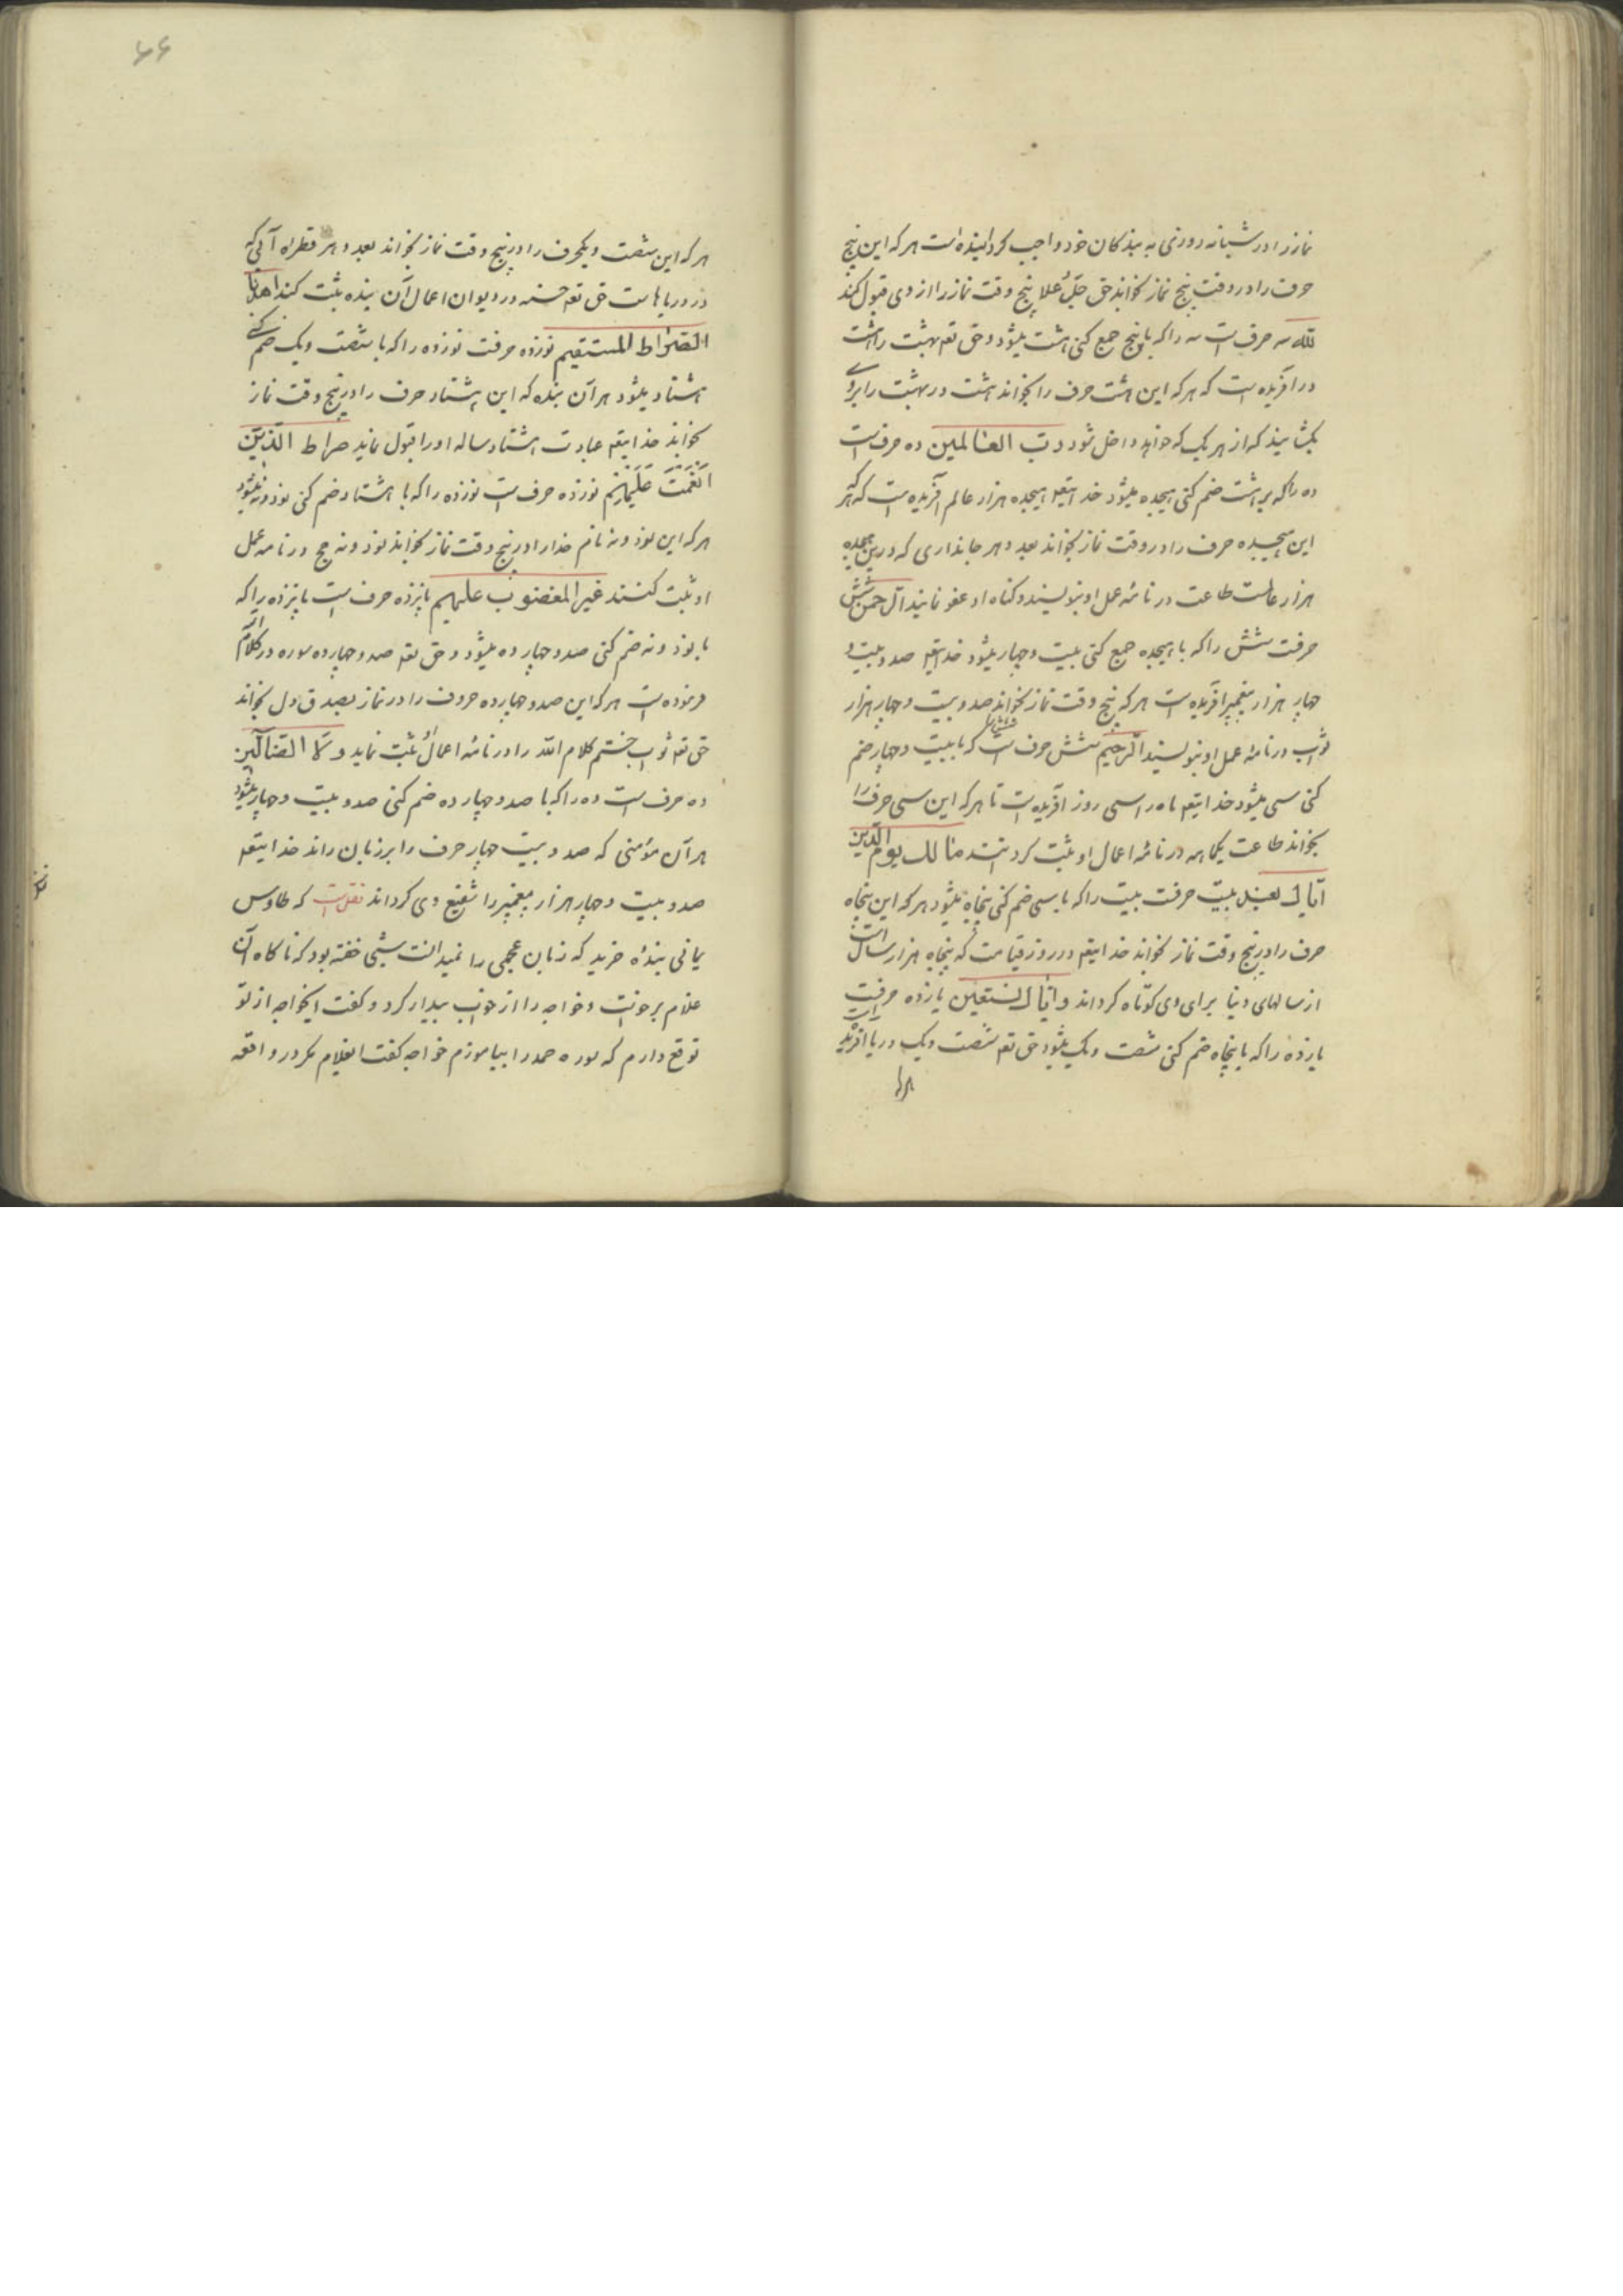 نماز را در شبانه روزی به بندکان خود واجب کردانیده است هر که این پنج
حرف را در وقت پنج نماز بخواند حق جلّ علا پنج وقت نماز را از وی قبول کند
لله سه حرف است سه را که با پنج جمع کنی هشت میشود و حق تعه بهشت را هشت
در آفریده است که هر که این هشت حرف را بخواند هشت در بهشت را بروی
بکشایند که از هر یک که خواهد داخل شود رب العالمین ده حرف است
ده را که بر هشت ضم کنی هیجده میشود خدایتعه هیجده هزار عالم آفریده است که هر که
این هیجده حرف را در وقت نماز بخواند بعدد هر جانداری که درین هیجده
هزار عالمست طاعت در نامهٔ عمل او بنویسند و کناه او عفو نمایند الرحمن شش
حرفت شش را که با هیجده جمع کنی بیست و چهار میشود خدایتعه صد و بیست و
چهار هزار پیغمبر آفریده است هر که پنج وقت نماز بخواند صد و بیست و چهار هزار
ثواب در نامهٔ عمل او بنویسند الرّحیم شش حرف است شش را که با بیست و چهار ضم
کنی سی میشود خدایتعه ماه را سی روز آفریده است تا هر که این سی حرف را
بخواند طاعت یکماهه در نامهٔ اعمال او ثبت کردانند مالک یوم الدّین
ایّاک نعبد بیست حرفت بیست را که با سی ضم کنی پنجاه میشود هر که این پنجاه
حرف را در پنج وقت نماز بخواند خدایتعه در روز قیامت که پنجاه هزار سال است
از سالهای دنیا برای وی کوتاه کرداند وایّاک نستعین یازده حرفست
یازده را که با پنجاه ضم کنی شصت و یک میشود حق تعه شصت و یک دریا آفریده است
هر که
۶۶
هر که این شصت و یکحرف را در پنج وقت نماز بخواند بعدد هر قطراه آبی که
در دریاهاست حق تعه حسنه در دیوان اعمال آن بنده ثبت کند اهدنا
الصّراط المستقیم نوزده حرفت نوزده را که با شصت و یک ضم کنی
هشتاد میشود هر آن بنده که این هشتاد حرف را در پنج وقت نماز
بخواند خدایتعه عبادت هشتاد ساله او را قبول نماید صراط الّذین
انعمت علیهم نوزده حرف است نوزده را که با هشتاد ضم کنی نود و نه میشود
هر که این نود و نه نام خدا را در پنج وقت نماز بخواند نود و نه حج در نامه عمل
او ثبت کنند غیر المغضوب علیهم پانزده حرف است پانزده را که
با نود و نه ضم کنی صد و چهارده میشود و حق تعه صد و چهارده سوره در کلام
فرموده است هر که این صد و چهارده حروف را در نماز بصدق دل بخواند
حق تعه ثواب ختم کلام الله را در نامهٔ اعمالش ثبت نماید ولا الضّالّین
ده حرف است ده را که با صد و چهارده ضم کنی صد و بیست و چهار میشود
هر آن مؤمنی که صد و بیست چهار حرف را بر زبان راند خدایتعه
صد و بیست و چهار هزار پیغمبر را شفیع وی کرداند نقلست که طاوس
یمانی بندهٔ خرید که زبان عجمی را نمیدانست شبی خفته بود که ناکاه آن
غلام برخواست و خواجه را از خواب بیدار کرد و کفت ایخواجه از تو
توقع دارم که سوره حمد را بیاموزم خواجه کفت ایغلام مکر در واقعه